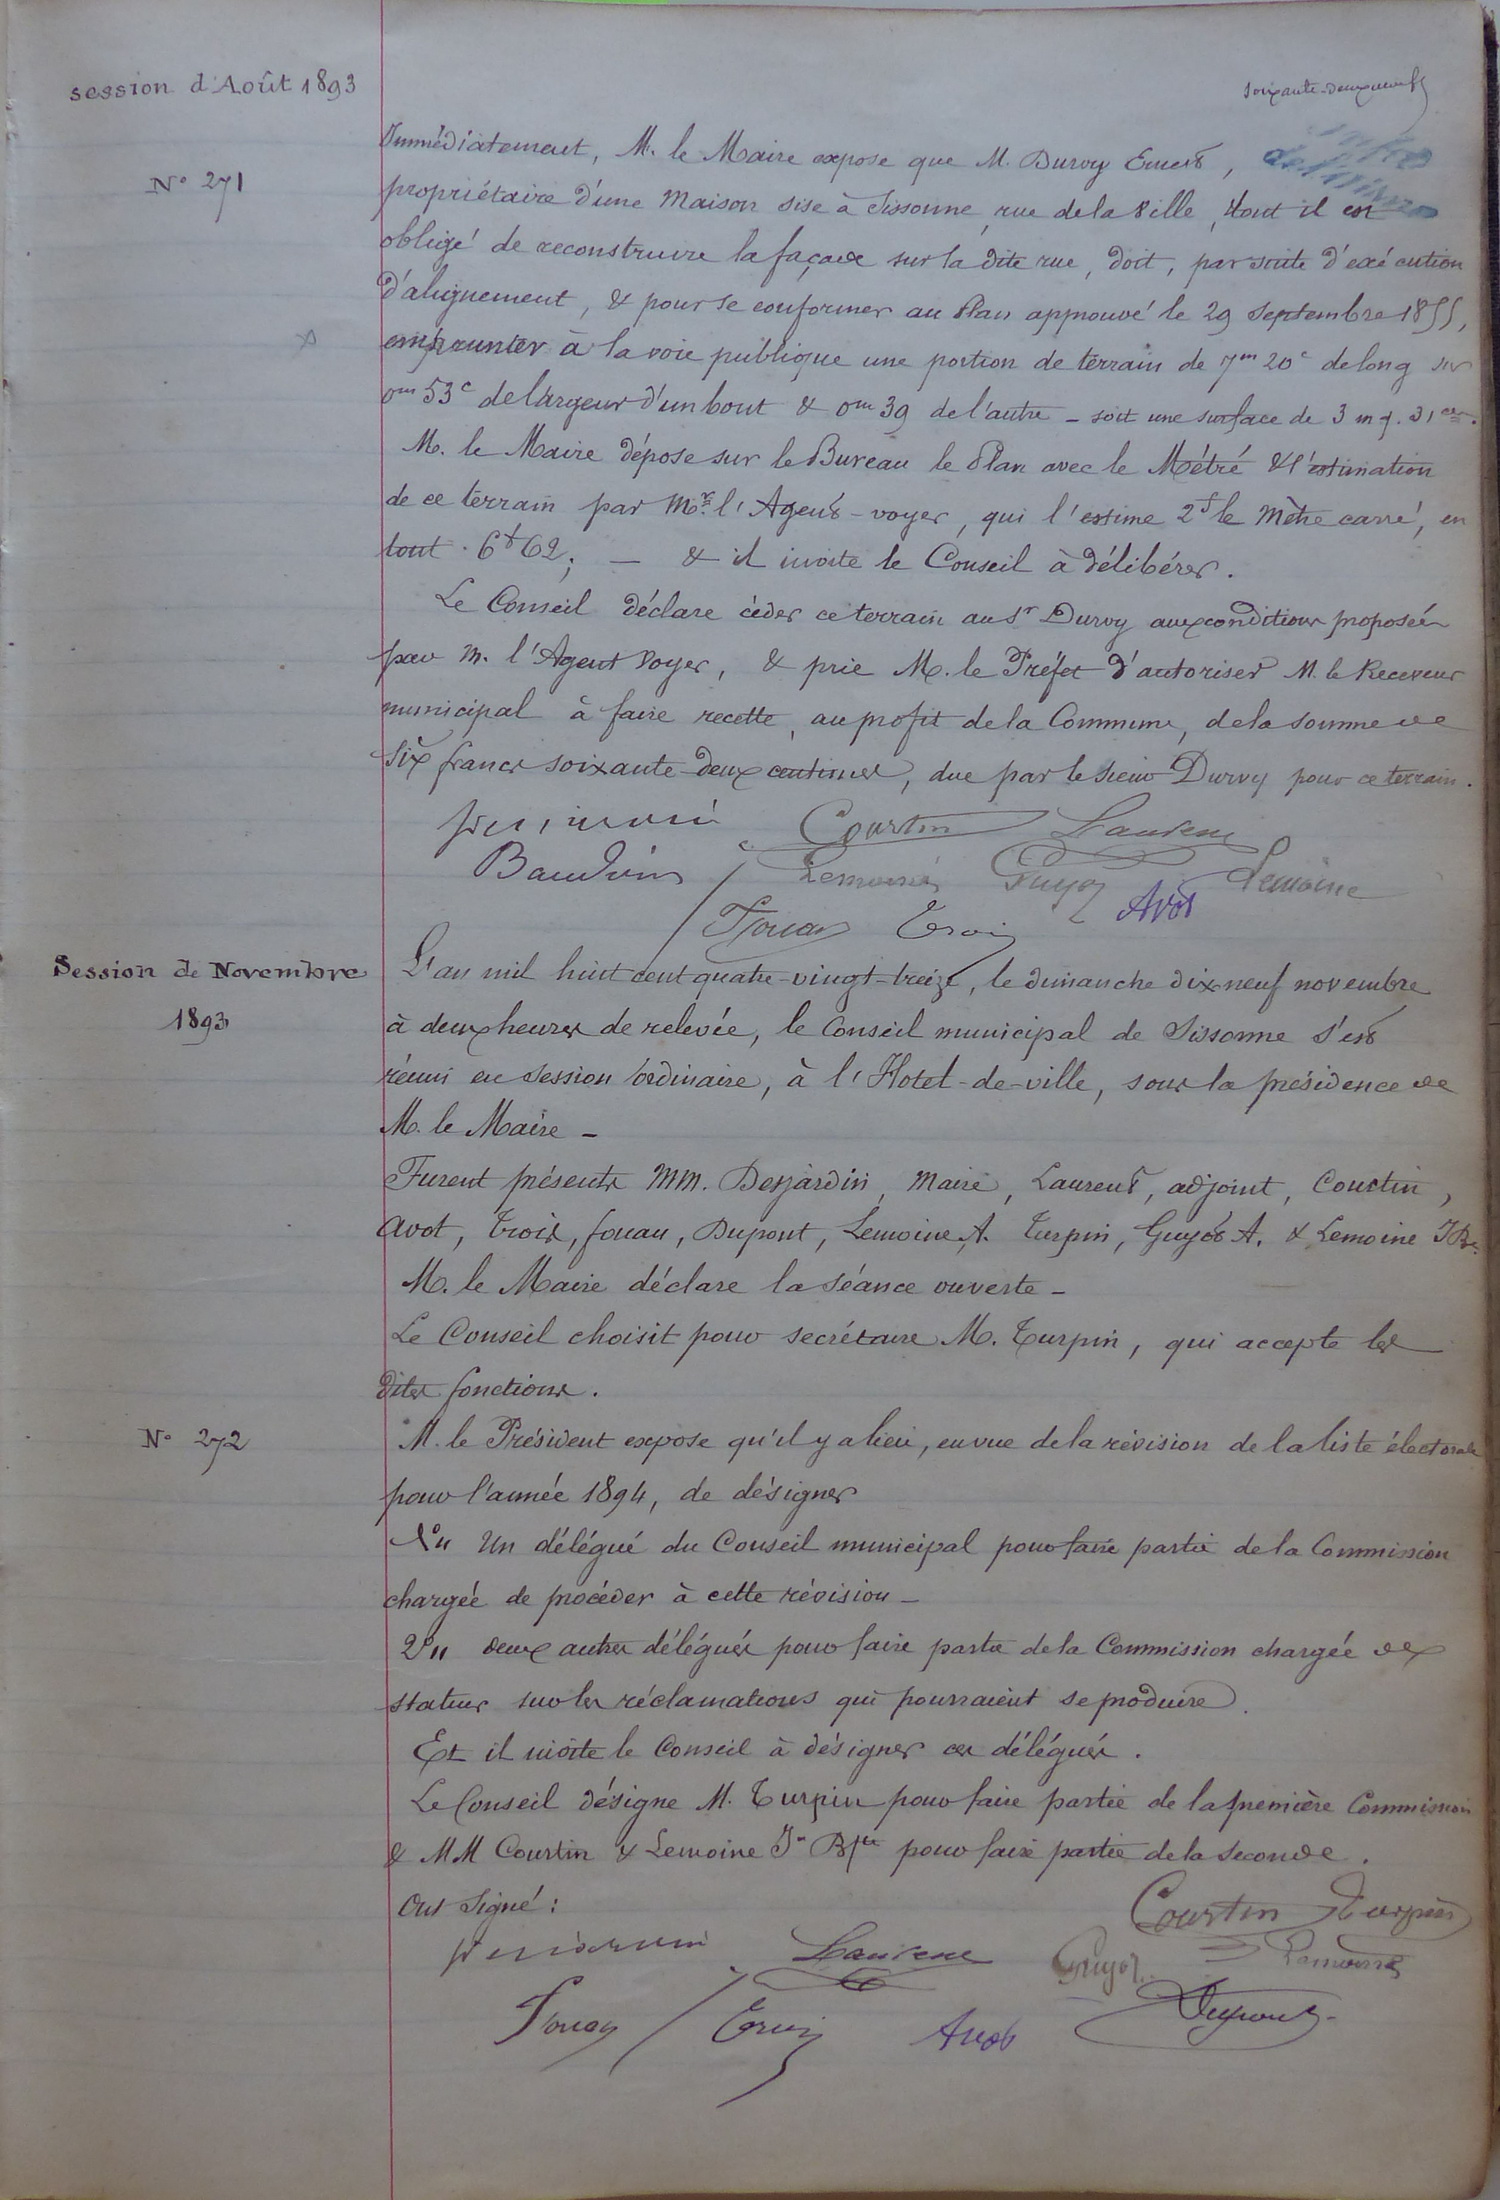 session d'Août 1893
soixante-deux
N° 271
Immédiatement, M. le Maire expose que M. Duroy Ernest,
propriétaire d'une Maison sise à Sissonne, rue de la Ville, dont il est
obligé de reconstruire la façade sur la dite rue, doit, par suite d'exécution
d'alignement, & pour se conformer au Plan approuvé le 29 Septembre 1855,
emprunter à la voie publique une portion de terrain de 7m 20c de long sur
0m 53c de largeur d'un bout & 0m 39 de l'autre - soit une surface de 3 m q. 31 ces.
M. le Maire dépose sur le Bureau le Plan avec le Métré & l'estimation
de ce terrain par Mr. l'Agent-voyer, qui l'estime 2f le Mètre carré, en
tout. 6f 62; — & il invite le Conseil à délibérer.
Le Conseil déclare céder ce terrain au Sr Duroy aux conditions proposées
par M. l'Agent Voyer, & prie M. le Préfet d'autoriser M. le Receveur
municipal à faire recette, au profit de la Commune, de la somme de
Six francs soixante-deux centimes, due par le sieur Duroy pour ce terrain.
Courtin Laurent
Baudoin Lemoine Guyot Lemoine
Avot
Fouan Troix
Session de Novembre
1893
L'an mil huit cent quatre-vingt-treize, le dimanche dix-neuf novembre
à deux heures de relevée, le Conseil municipal de Sissonne s'est
réuni en Session ordinaire, à l'Hotel-de-ville, sous la présidence de
M. le Maire -
Furent présents MM. Desjardin, Maire, Laurent, adjoint, Courtin,
Avot, Troix, fouan, Dupont, Lemoine A. Turpin, Guyot A. & Lemoine J Bte
M. le Maire déclare la séance ouverte -
Le Conseil choisit pour secrétaire M. Turpin, qui accepte les
dites fonctions.
N° 272
M. le Président expose qu'il y a lieu, en vue de la révision de la liste électorale
pour l'année 1894, de désigner
1° " Un délégué du Conseil municipal pour faire partie de la Commission
chargée de procéder à cette révision -
2° " deux autres délégués pour faire partie de la Commission chargée de
statuer sur les réclamations qui pourraient se produire.
Et il invite le Conseil à désigner ces délégués.
Le Conseil désigne M. Turpin pour faire partie de la première Commission
& MM Courtin & Lemoine Jn Bpte pour faire partie de la seconde.
Ont Signé:
Courtin Turpin
Laurent Guyot Lemoine
Fouan Troix Avot Dupont